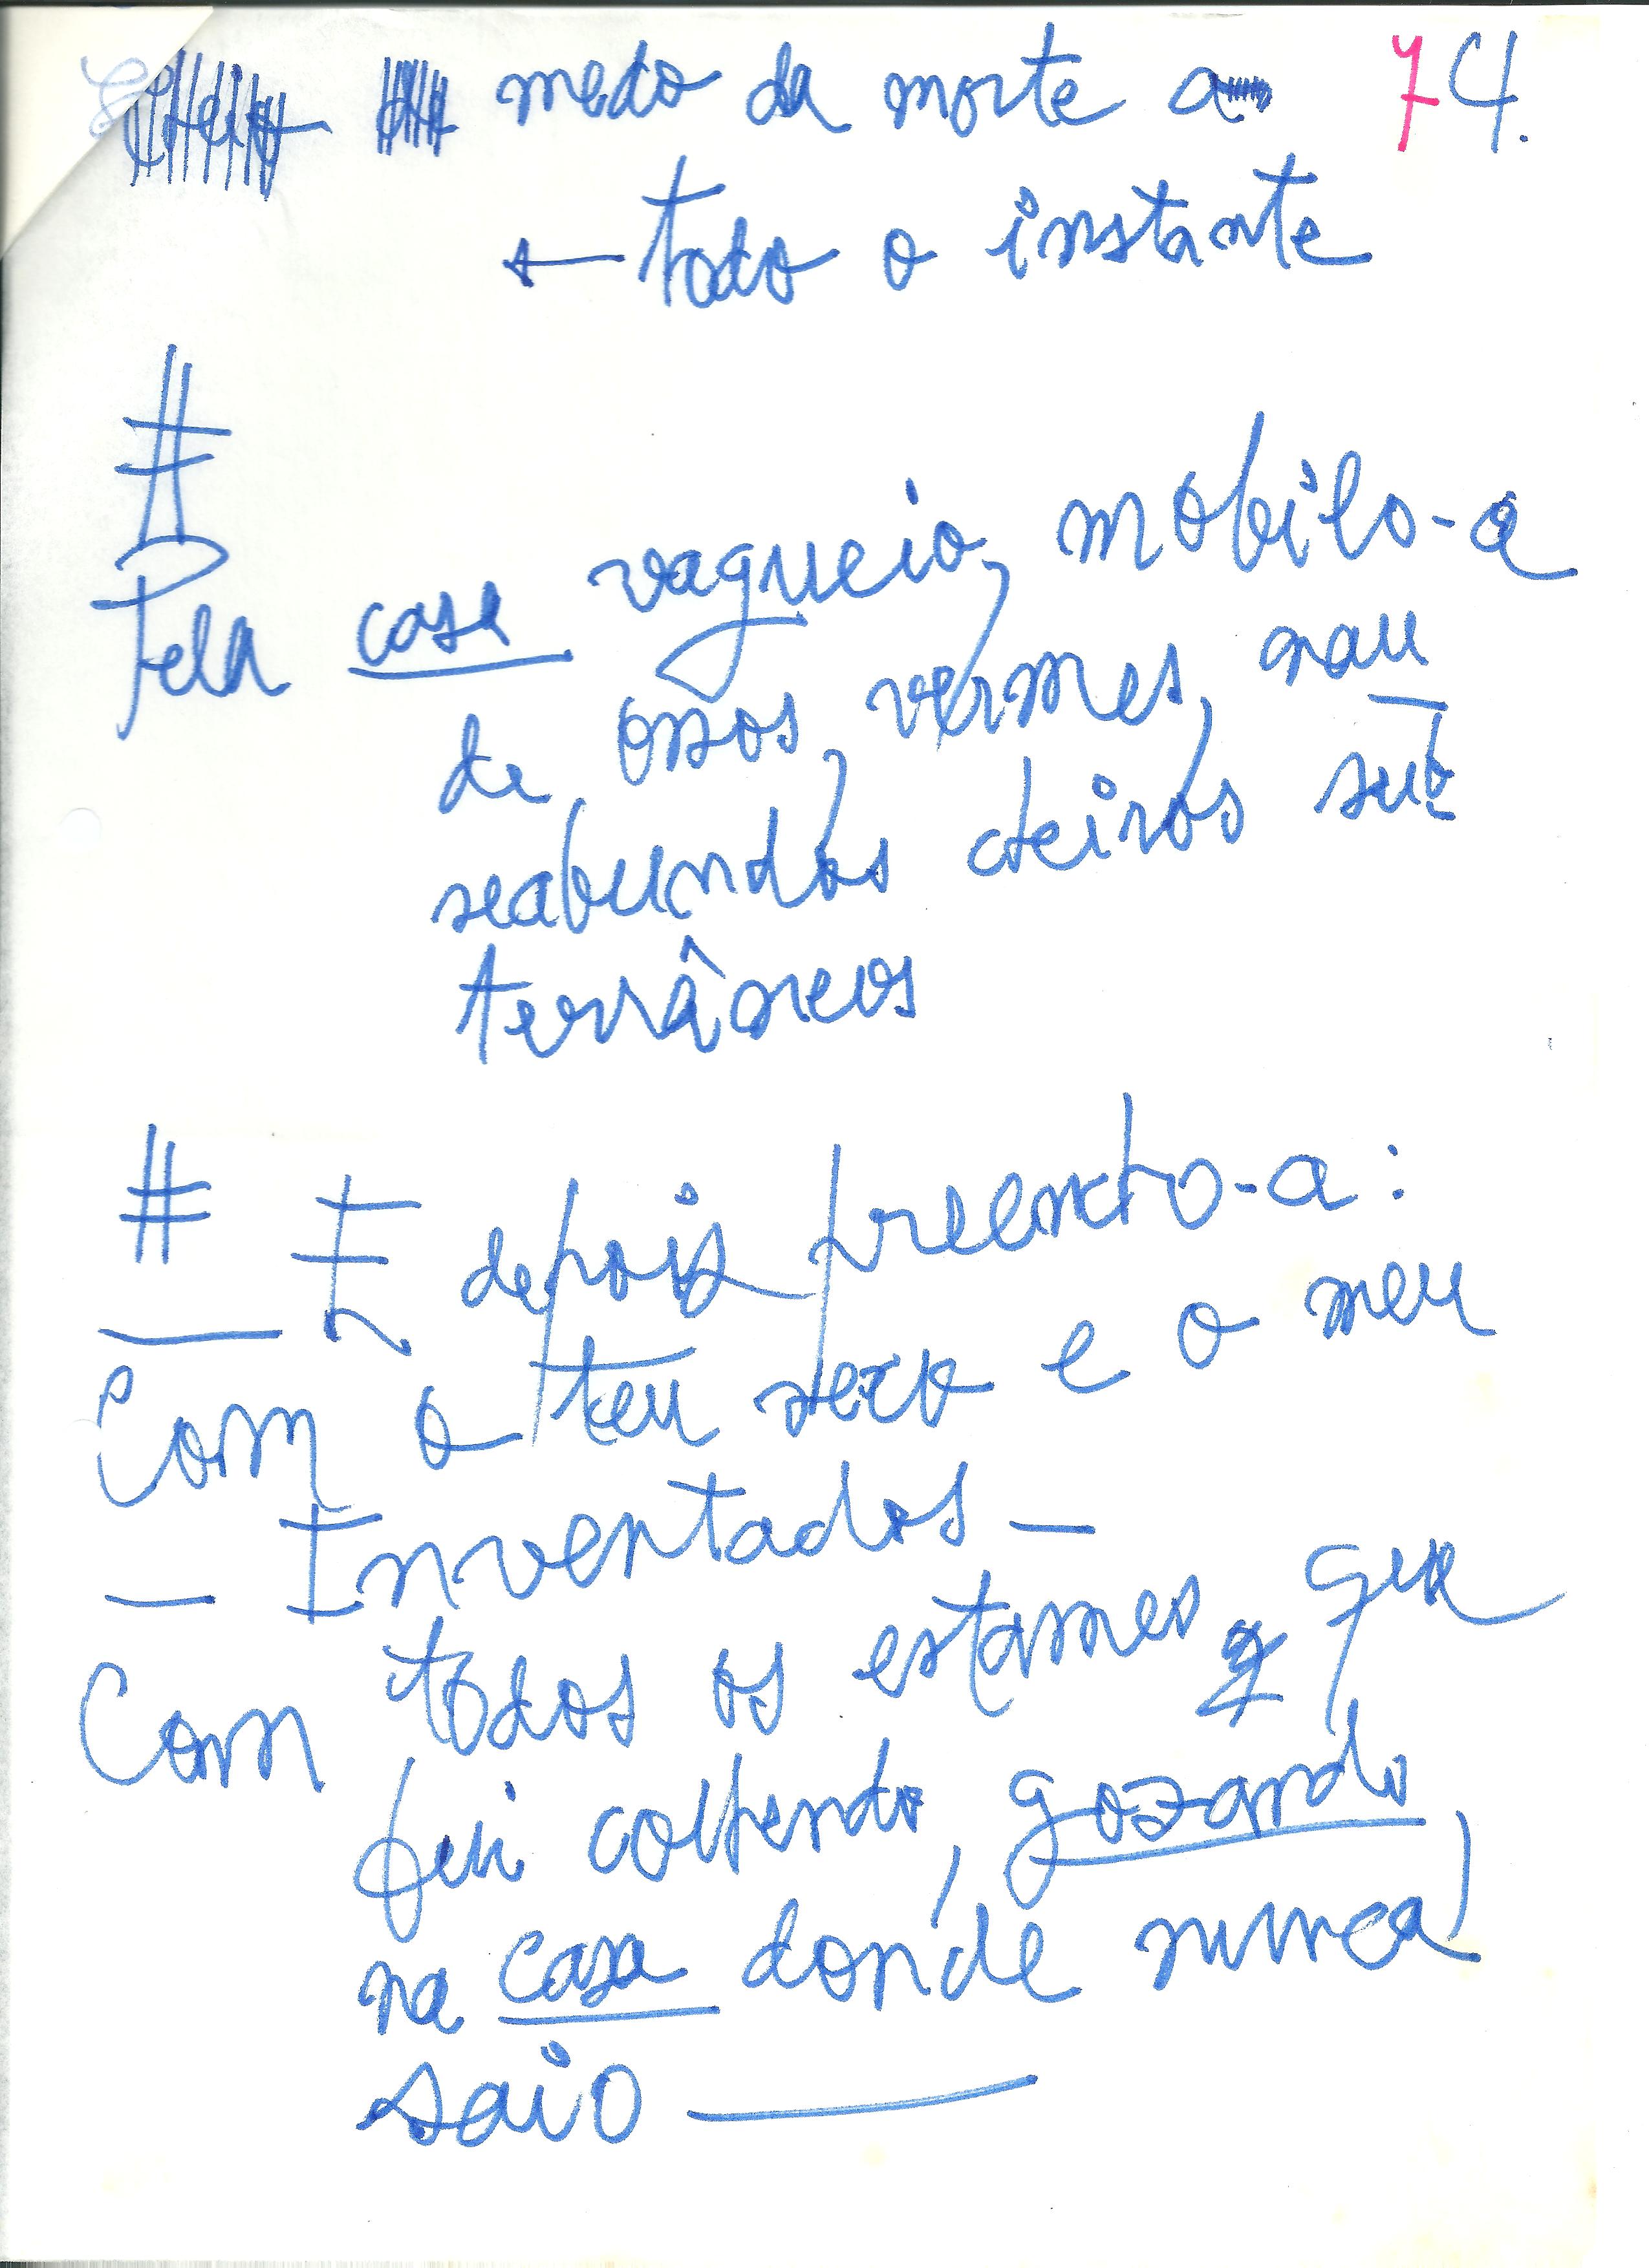 medo da morte a 74.
← todo o instante
#
Pela casa vagueio, mobilo-a
de ossos, vermes, nau
seabundos cheiros sub
terrâneos
# E depois preencho-a:
Com o teu sexo e o meu
— Inventados —
Com todos os estames que
fui colhendo, gozando
na casa donde nunca
saio —